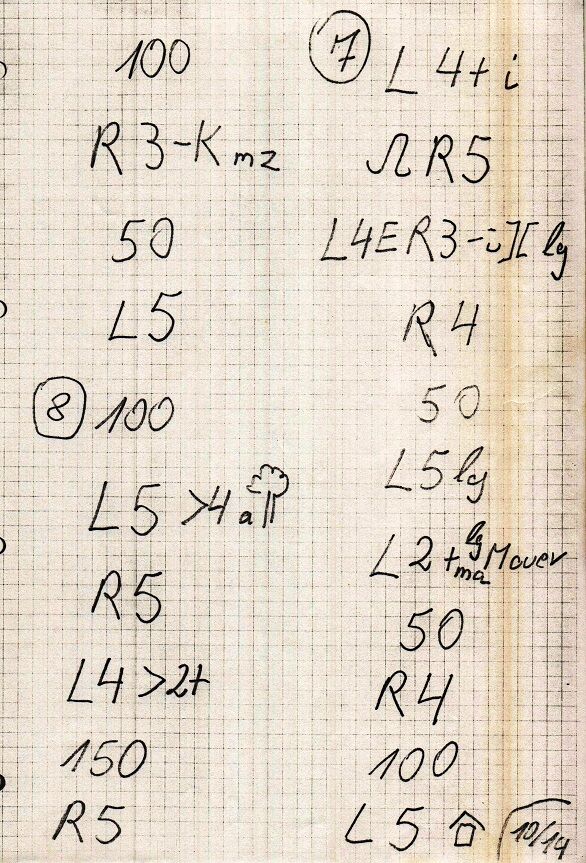 100
R3-Kmz
50
L5
⑧ 100
L5 >4 a
R5
L4 >2+
150
R5
⑦ L4+i
R5
L4ER3-i][ lg
R4
50
L5lg
L2+ lg ma Mauer
50
R4
100
L5
10/14